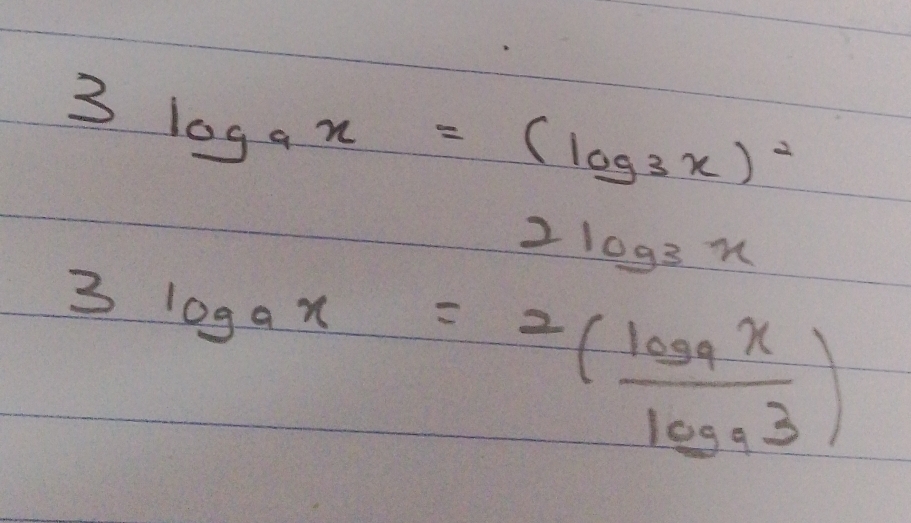 3 log₉ x = (log₃ x)²
2 log₃ x
3 log₉ x = 2 (log₉ x / log₉ 3)